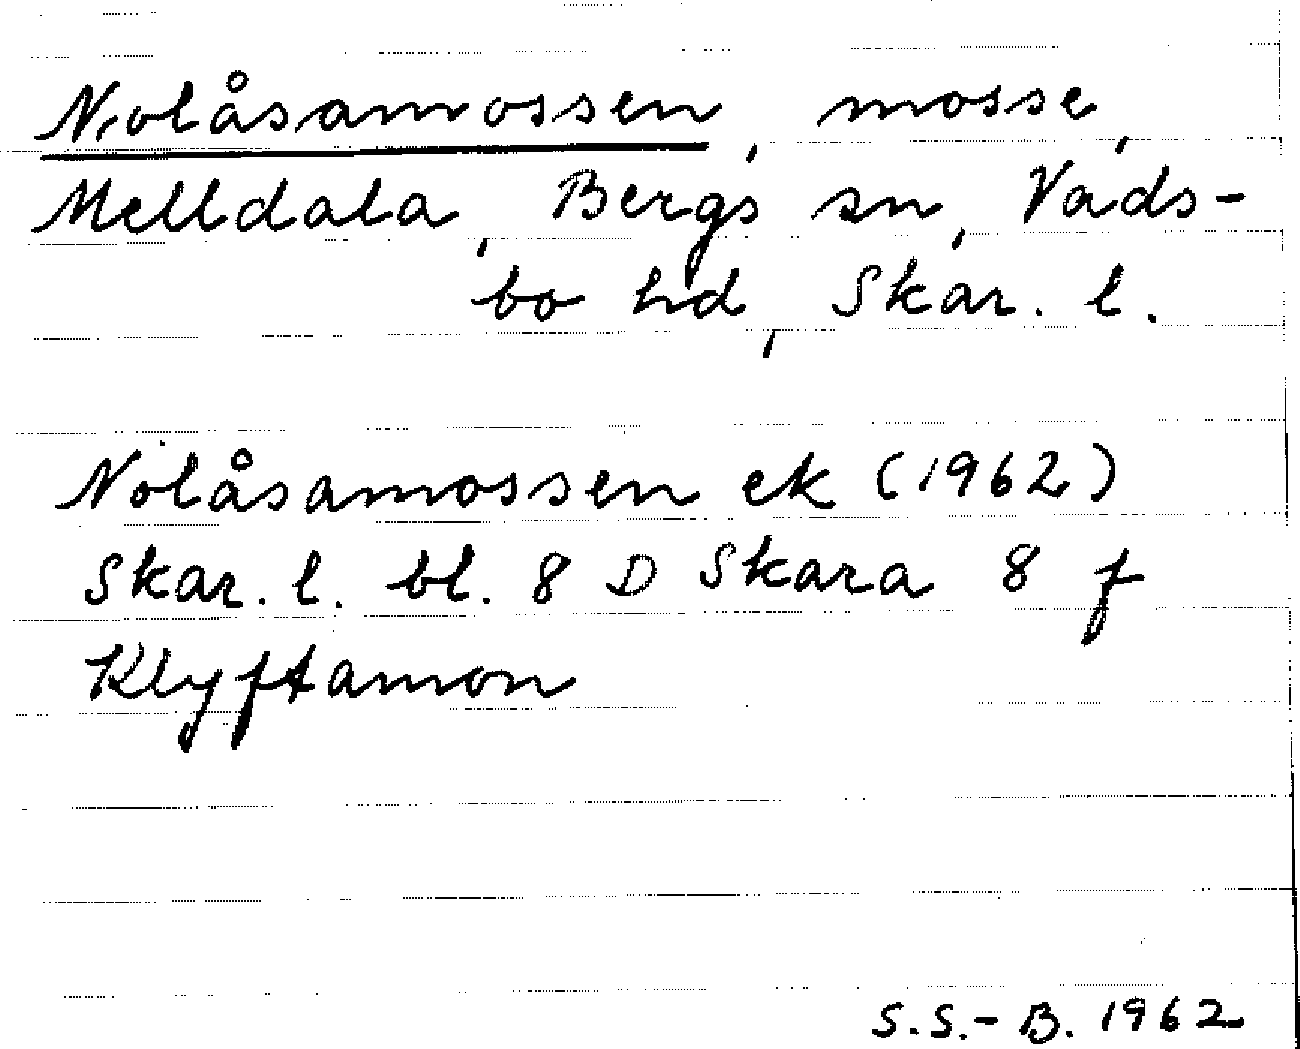 Nolåsamossen, mosse,
Melldala, Bergs sn, Vads-
bo hd, Skar. l.
Nolåsamossen ek (1962)
Skar. l. bl. 8 D Skara 8 f
Klyftamon
S.S.-B. 1962